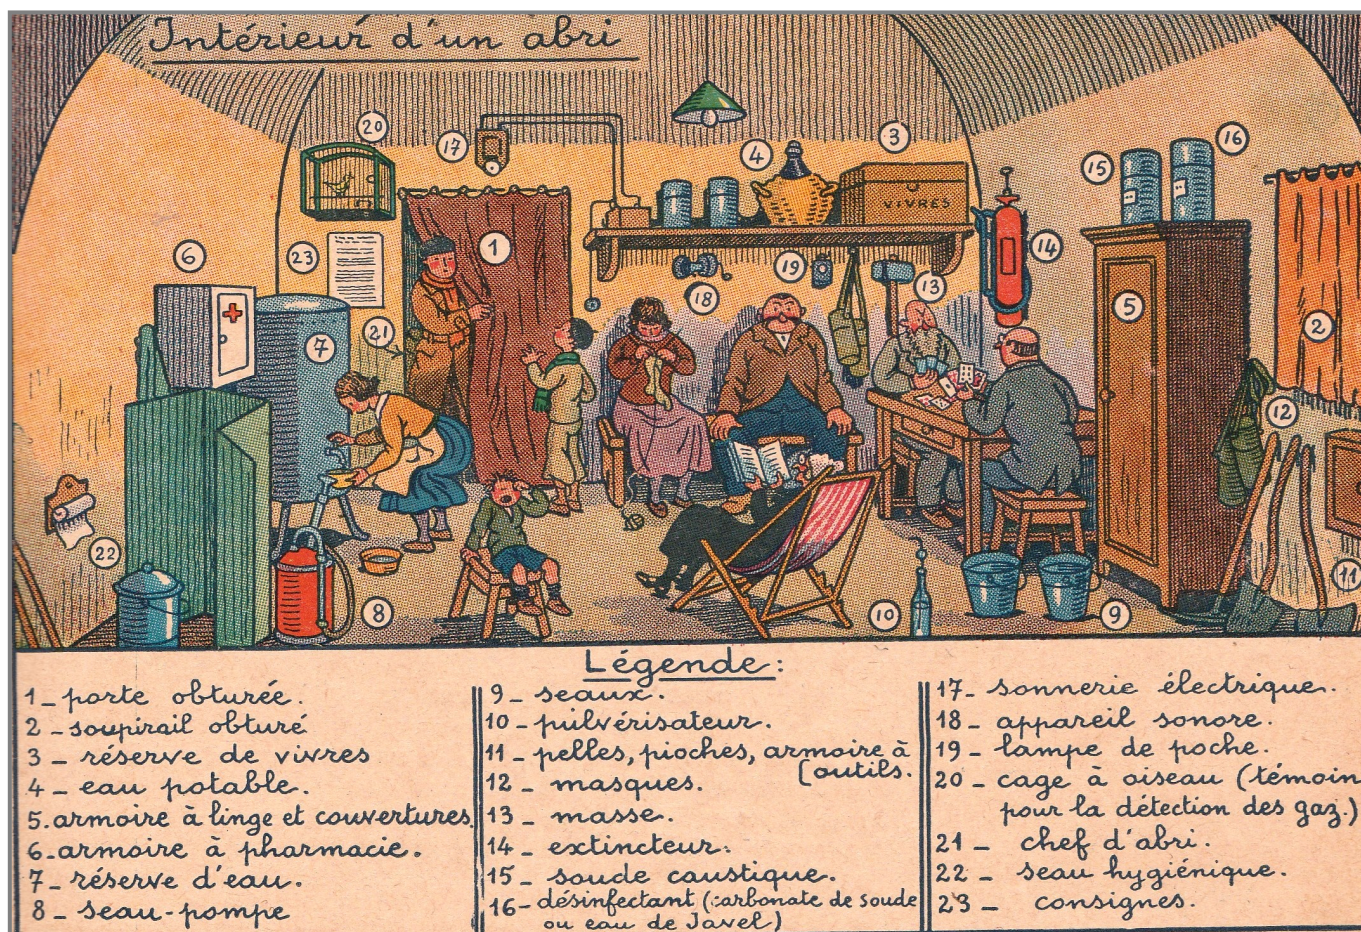 Intérieur d'un abri
20
17
4
3
15
16
VIVRES
1
6
23
19
14
18
13
5
2
7
21
12
22
8
10
9
11
Légende :
1 _ porte obturée.
2 _ soupirail obturé
3 _ réserve de vivres
4 _ eau potable.
5. armoire à linge et couvertures
6. armoire à pharmacie.
7 _ réserve d'eau.
8 _ seau-pompe
9 _ seaux.
10 _ pulvérisateur.
11 _ pelles, pioches, armoire à
[outils.
12 _ masques.
13 _ masse.
14 _ extincteur.
15 _ soude caustique.
16 _ désinfectant (carbonate de soude
ou eau de Javel)
17 _ sonnerie électrique.
18 _ appareil sonore.
19 _ lampe de poche.
20 _ cage à oiseau (témoin
pour la détection des gaz.)
21 _ chef d'abri.
22 _ seau hygiénique.
23 _ consignes.